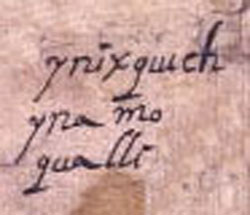 ynixquich
yna m̃o
qualli